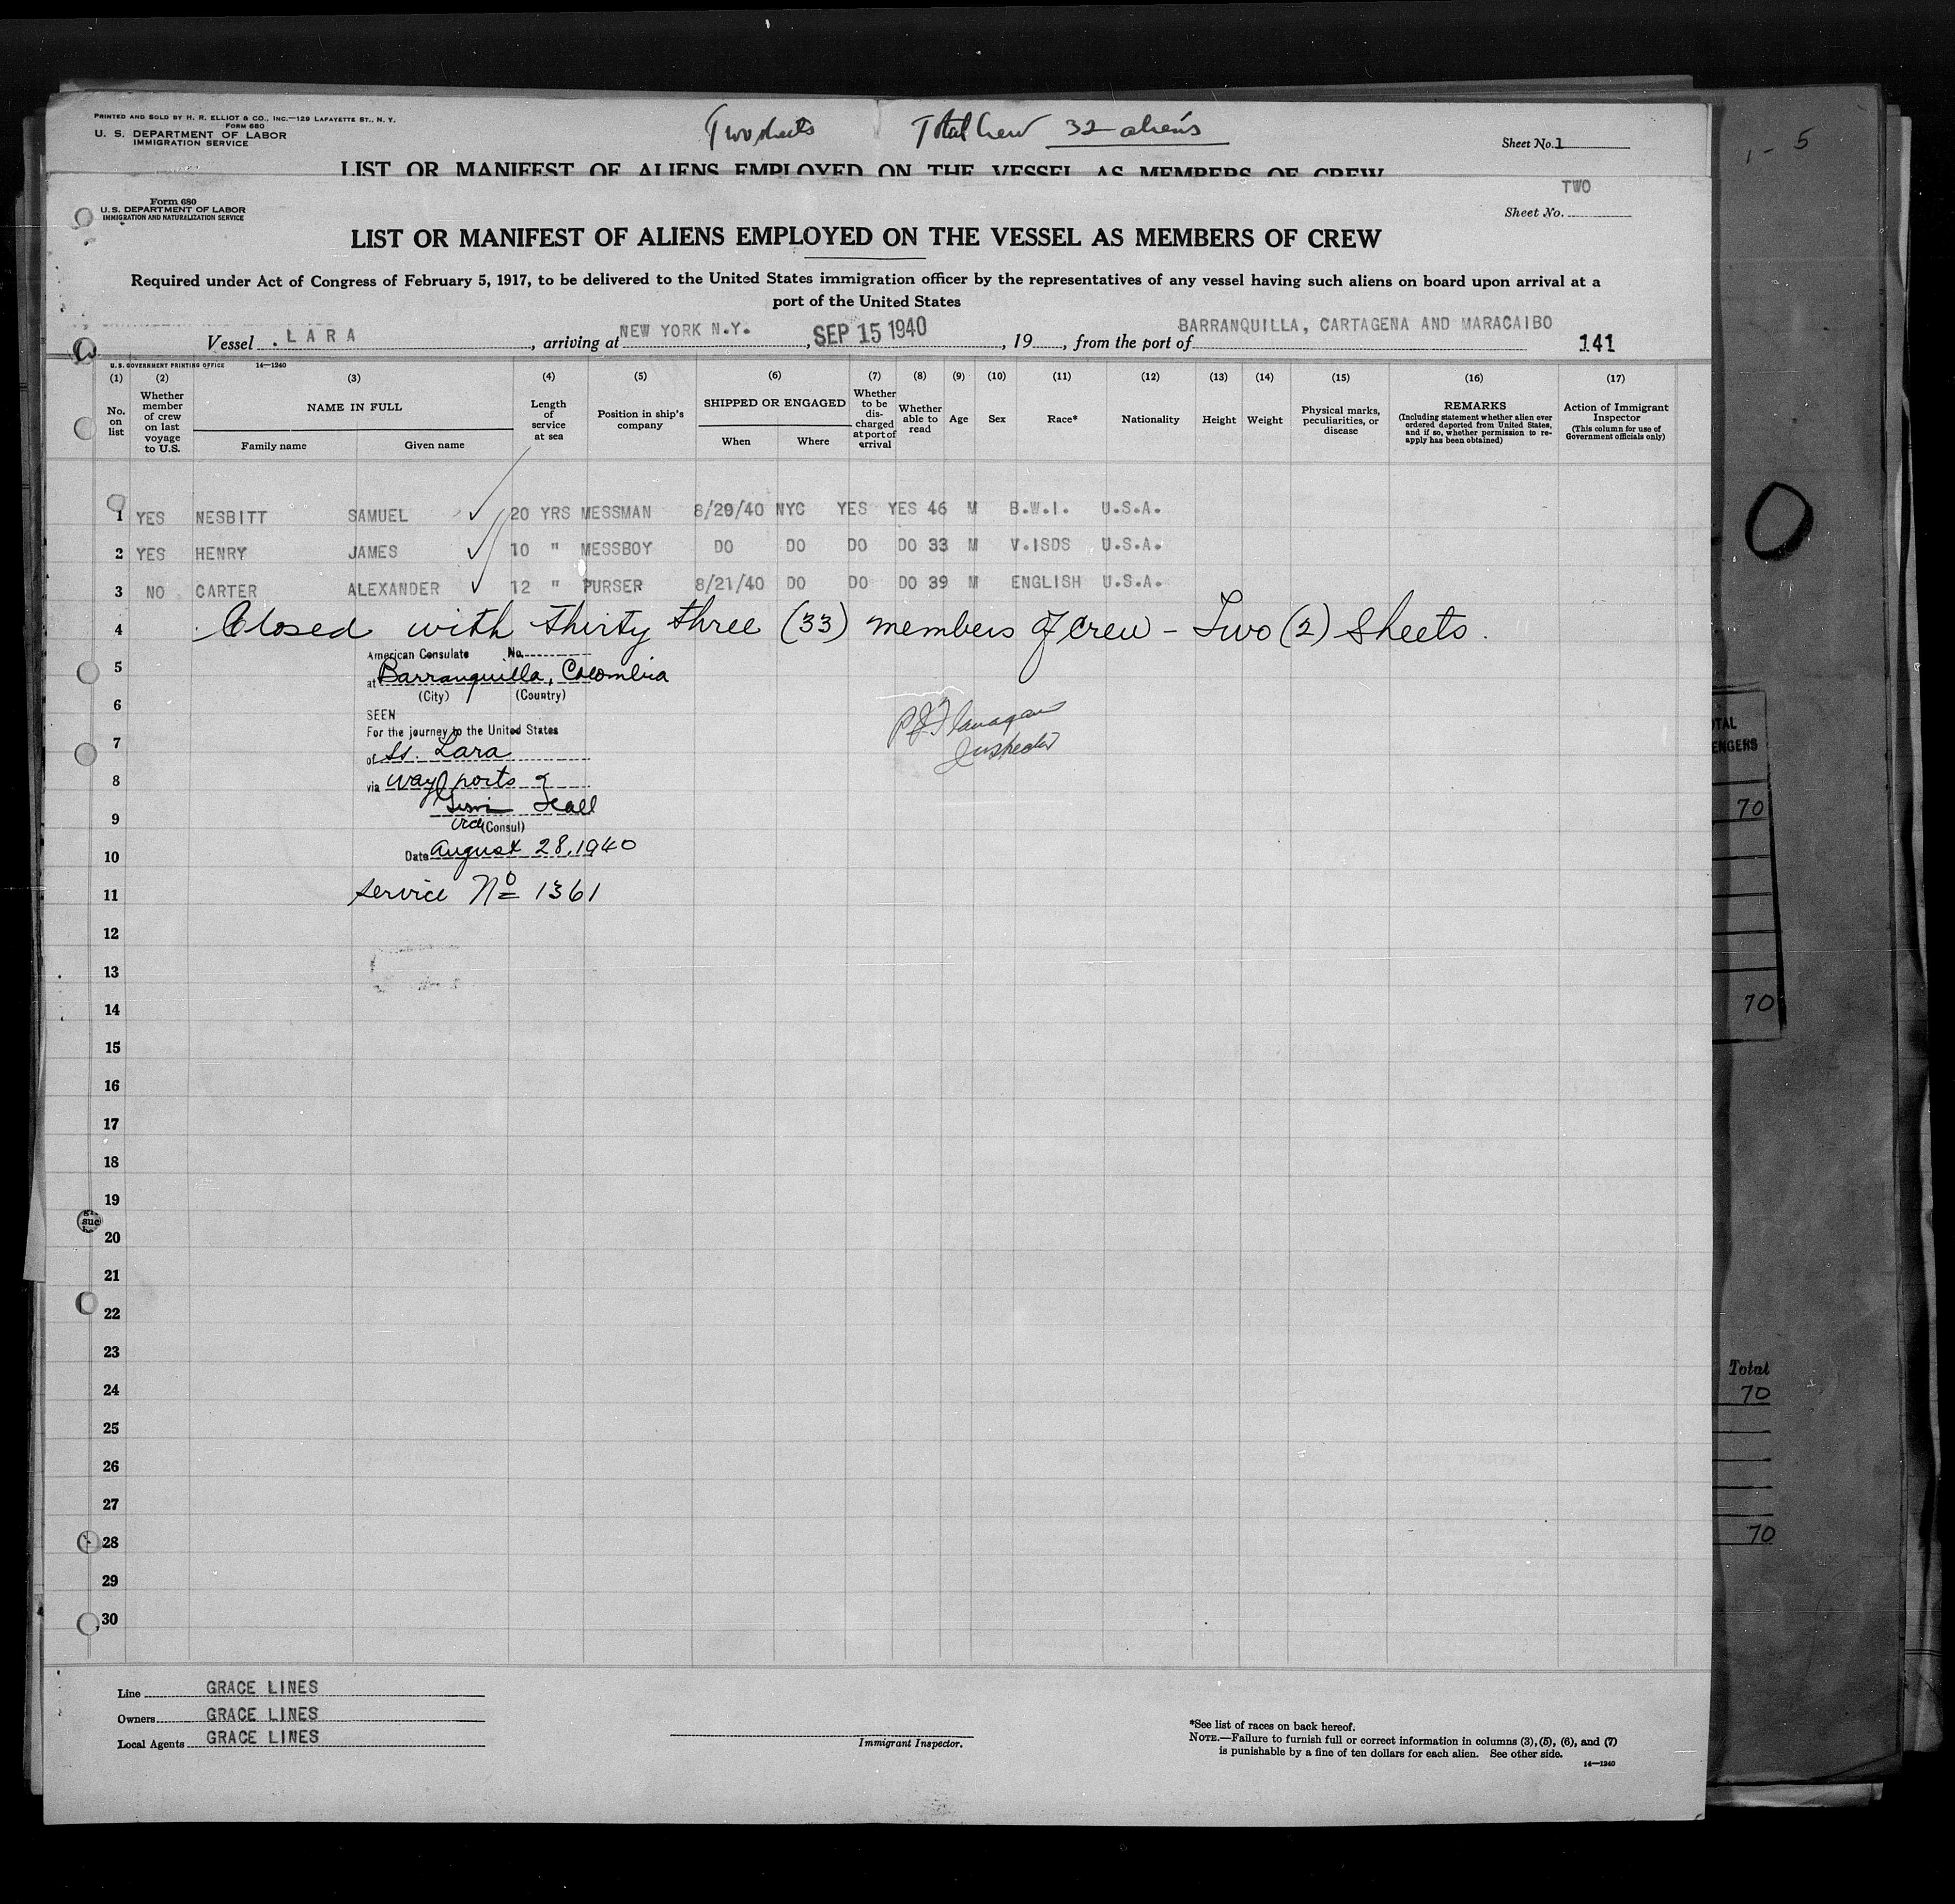 PRINTED AND SOLD BY H. R. ELLIOT & CO., INC.—129 LAFAYETTE ST., N. Y.
FORM 680
U. S. DEPARTMENT OF LABOR
IMMIGRATION SERVICE
Two sheets Total Crew 32 aliens
Sheet No. 1
LIST OR MANIFEST OF ALIENS EMPLOYED ON THE VESSEL AS MEMBERS OF CREW
Form 680
U. S. DEPARTMENT OF LABOR
IMMIGRATION AND NATURALIZATION SERVICE
TWO
Sheet No.
LIST OR MANIFEST OF ALIENS EMPLOYED ON THE VESSEL AS MEMBERS OF CREW
Required under Act of Congress of February 5, 1917, to be delivered to the United States immigration officer by the representatives of any vessel having such aliens on board upon arrival at a
port of the United States
Vessel LARA, arriving at NEW YORK N.Y., SEP 15 1940, 19, from the port of BARRANQUILLA, CARTAGENA AND MARACAIBO 141
U. S. GOVERNMENT PRINTING OFFICE 14—1240
(1) No. on list
(2) Whether member of crew on last voyage to U.S.
(3) NAME IN FULL
Family name Given name
(4) Length of service at sea
(5) Position in ship's company
(6) SHIPPED OR ENGAGED
When Where
(7) Whether to be discharged at port of arrival
(8) Whether able to read
(9) Age
(10) Sex
(11) Race*
(12) Nationality
(13) Height
(14) Weight
(15) Physical marks, peculiarities, or disease
(16) REMARKS (Including statement whether alien ever ordered deported from United States, and if so, whether permission to reapply has been obtained)
(17) Action of Immigrant Inspector (This column for use of Government officials only)
1 YES NESBITT SAMUEL ✓ 20 YRS MESSMAN 8/29/40 NYC YES YES 46 M B.W.I. U.S.A.
2 YES HENRY JAMES ✓ 10 " MESSBOY DO DO DO DO 33 M V.ISDS U.S.A.
3 NO CARTER ALEXANDER ✓ 12 " PURSER 8/21/40 DO DO DO 39 M ENGLISH U.S.A.
4 Closed with thirty three (33) members of crew - Two (2) Sheets.
American Consulate No.
5
at Barranquilla, Colombia
(City) (Country)
6
SEEN
For the journey to the United States
7
of Ss. Lara
8
via way ports
Hall
9
Vice (Consul)
10
Date August 28, 1940
11
service No 1361
P J Flanagan
Inspector
12
13
14
15
16
17
18
19
20
21
22
23
24
25
26
27
28
29
30
Line GRACE LINES
Owners GRACE LINES
Local Agents GRACE LINES
Immigrant Inspector.
*See list of races on back hereof.
NOTE.—Failure to furnish full or correct information in columns (3), (5), (6), and (7)
is punishable by a fine of ten dollars for each alien. See other side.
14—1240
1 - 5
70
70
Total
70
70